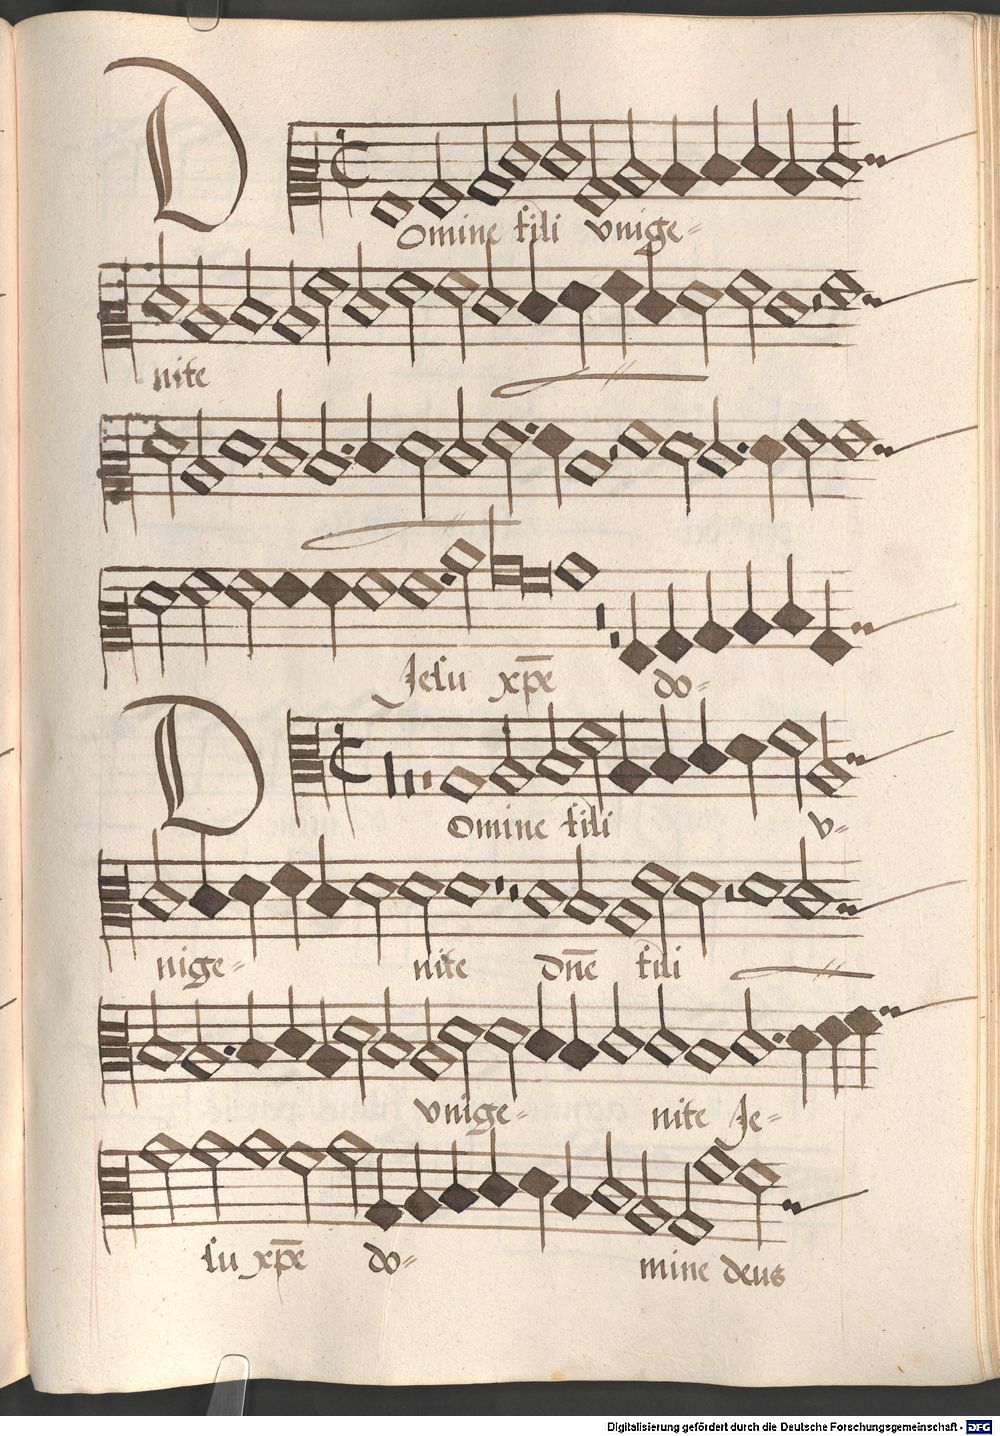 Domine fili vnige=
nite
Jesu xp̄e do=
Domine fili v=
nige= nite dn̄e fili
vnige= nite Je=
su xp̄e do= mine deus
Digitalisierung gefördert durch die Deutsche Forschungsgemeinschaft - DFG